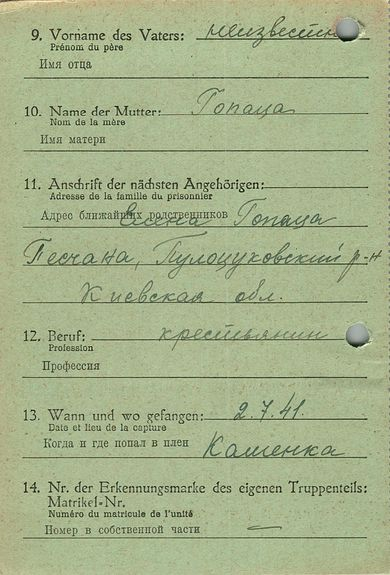 9. Vorname des Vaters: неизвестн
Prénom du père
Имя отца
10. Name der Mutter: Гопаца
Nom de la mère
Имя матери
11. Anschrift der nächsten Angehörigen:
Adresse de la famille du prisonnier
Адрес ближайших родственников Елена Гопаца
Песчана, Пулоцуковский р-н
Киевская обл.
12. Beruf: крестьянин
Profession
Профессия
13. Wann und wo gefangen: 2.7.41.
Date et lieu de la capture
Когда и где попал в плен Кашенка
14. Nr. der Erkennungsmarke des eigenen Truppenteils:
Matrikel-Nr.
Numéro du matricule de l'unité
Номер в собственной части —